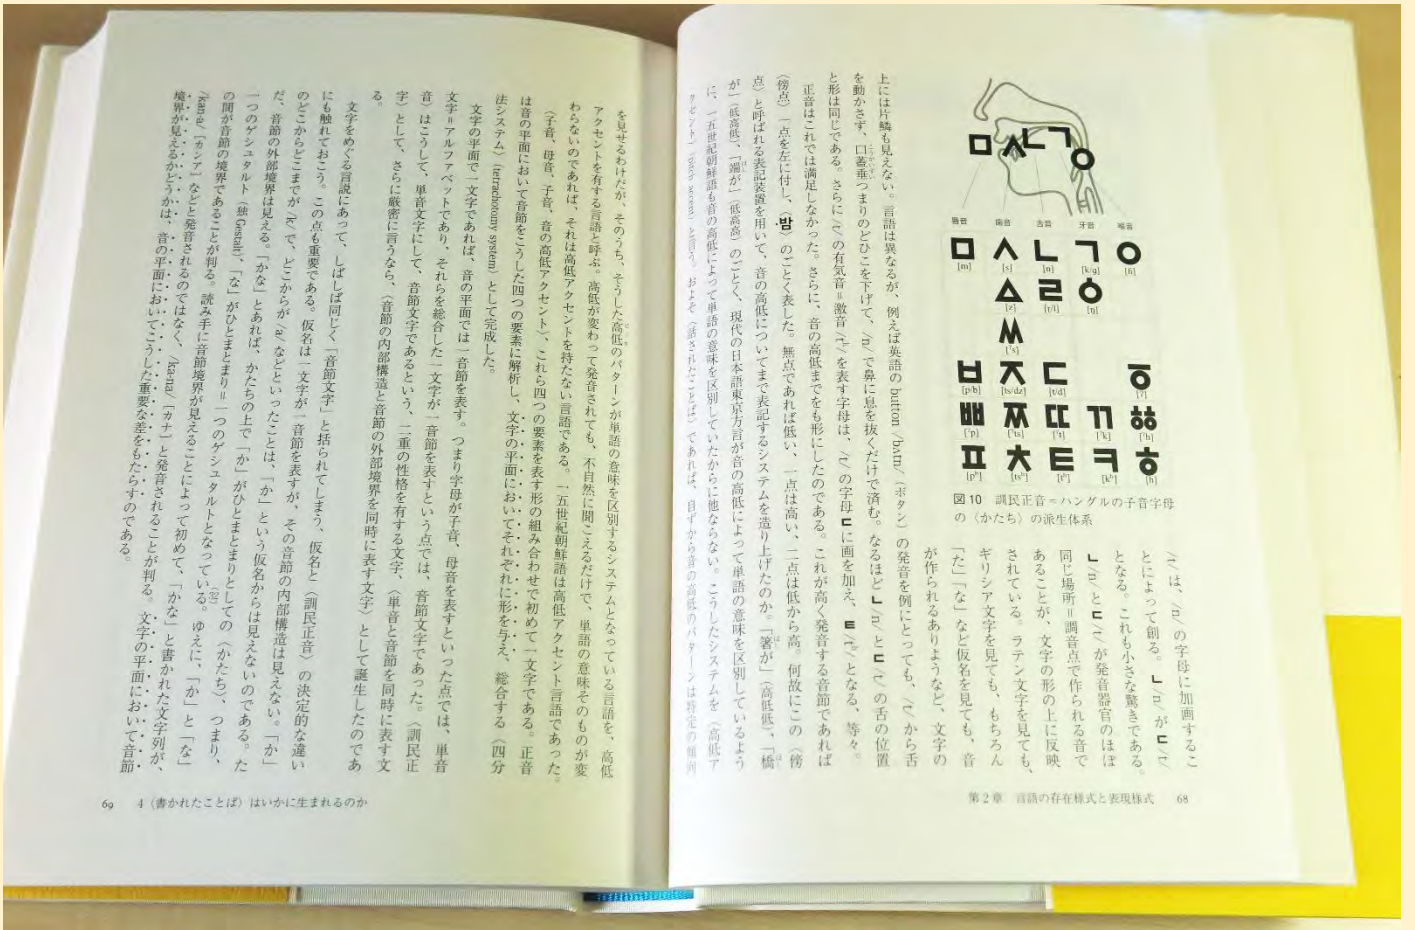 ㅁㅅㄴㄱㆁ
唇音 歯音 舌音 牙音 喉音
ㅁ ㅅ ㄴ ㄱ ㅇ
[m] [s] [n] [k/g] [ɦ]
ㅿ ㄹ ㆁ
[z] [r/l] [ŋ]
ㅆ
[ˀs]
ㅂ ㅈ ㄷ ㆆ
[p/b] [ts/dz] [t/d] [ʔ]
ㅃ ㅉ ㄸ ㄲ ㆅ
[ˀp] [ˀts] [ˀt] [ˀk] [ˀh]
ㅍ ㅊ ㅌ ㅋ ㅎ
[pʰ] [tsʰ] [tʰ] [kʰ] [h]
図10 訓民正音=ハングルの子音字母
の〈かたち〉の派生体系
/t/ は、/n/ の字母に加画するこ
とによって創る。ㄴ /n/ が ㄷ /t/
となる。これも小さな驚きである。
ㄴ /n/ と ㄷ /t/ が発音器官のほぼ
同じ場所=調音点で作られる音で
あることが、文字の形の上に反映
されている。ラテン文字を見ても、
ギリシア文字を見ても、もちろん
「た」「な」など仮名を見ても、音
が作られるありようなど、文字の
上には片鱗も見えない。言語は異なるが、例えば英語の button /bʌtn/(ボタン)の発音を例にとっても、/t/ から舌
を動かさず、口蓋垂つまりのどひこを下げて、/n/ で鼻に息を抜くだけで済む。なるほど ㄴ /n/ と ㄷ /t/ の舌の位置
と形は同じである。さらに /t/ の有気音=激音 /tʰ/ を表す字母は、/t/ の字母 ㄷ に画を加え、ㅌ /tʰ/ となる、等々。
正音はこれでは満足しなかった。さらに、音の高低までをも形にしたのである。これが高く発音する音節であれば
〈傍点〉一点を左に付し、〈·밤〉のごとく表した。無点であれば低い、一点は高い、二点は低から高。何故にこの〈傍
点〉と呼ばれる表記装置を用いて、音の高低についてまで表記するシステムを造り上げたのか。「箸が」(高低低)、「橋
が」(低高低)、「端が」(低高高)のごとく、現代の日本語東京方言が音の高低によって単語の意味を区別しているよう
に、一五世紀朝鮮語も音の高低によって単語の意味を区別していたからに他ならない。こうしたシステムを〈高低ア
クセント〉(pitch accent)と言う。およそ〈話されたことば〉であれば、自ずから音の高低のパターンは特定の傾向
第2章 言語の存在様式と表現様式 68
を見せるわけだが、そのうち、そうした高低のパターンが単語の意味を区別するシステムとなっている言語を、高低
アクセントを有する言語と呼ぶ。高低が変わって発音されても、不自然に聞こえるだけで、単語の意味そのものが変
わらないのであれば、それは高低アクセントを持たない言語である。一五世紀朝鮮語は高低アクセント言語であった。
〈子音、母音、子音、音の高低アクセント〉、これら四つの要素を表す形の組み合わせで初めて一文字である。正音
は音の平面において音節をこうした四つの要素に解析し、文字の平面においてそれぞれに形を与え、総合する〈四分
法システム〉(tetrachotomy system)として完成した。
文字の平面で一文字であれば、音の平面では一音節を表す。つまり字母が子音、母音を表すといった点では、単音
文字=アルファベットであり、それらを総合した一文字が一音節を表すという点では、音節文字であった。〈訓民正
音〉はこうして、単音文字にして、音節文字であるという、二重の性格を有する文字、〈単音と音節を同時に表す文
字〉として、さらに厳密に言うなら、〈音節の内部構造と音節の外部境界を同時に表す文字〉として誕生したのであ
る。
文字をめぐる言説にあって、しばしば同じく「音節文字」と括られてしまう、仮名と〈訓民正音〉の決定的な違い
にも触れておこう。この点も重要である。仮名は一文字が一音節を表すが、その音節の内部構造は見えない。「か」
のどこからどこまでが /k/ で、どこからが /a/ などといったことは、「か」という仮名からは見えないのである。た
だ、音節の外部境界は見える。「かな」とあれば、かたちの上で「か」がひとまとまりとしての〈かたち〉、つまり、
一つのゲシュタルト(独 Gestalt)、「な」がひとまとまり=一つのゲシュタルトとなっている。ゆえに、「か」と「な」
の間が音節の境界であることが判る。読み手に音節境界が見えることによって初めて、「かな」と書かれた文字列が、
/kan-a/[カンア]などと発音されるのではなく、/ka-na/[カナ]と発音されることが判る。文字の平面において音節
境界が見えるかどうかは、音の平面においてこうした重要な差をもたらすのである。
69 4〈書かれたことば〉はいかに生まれるのか